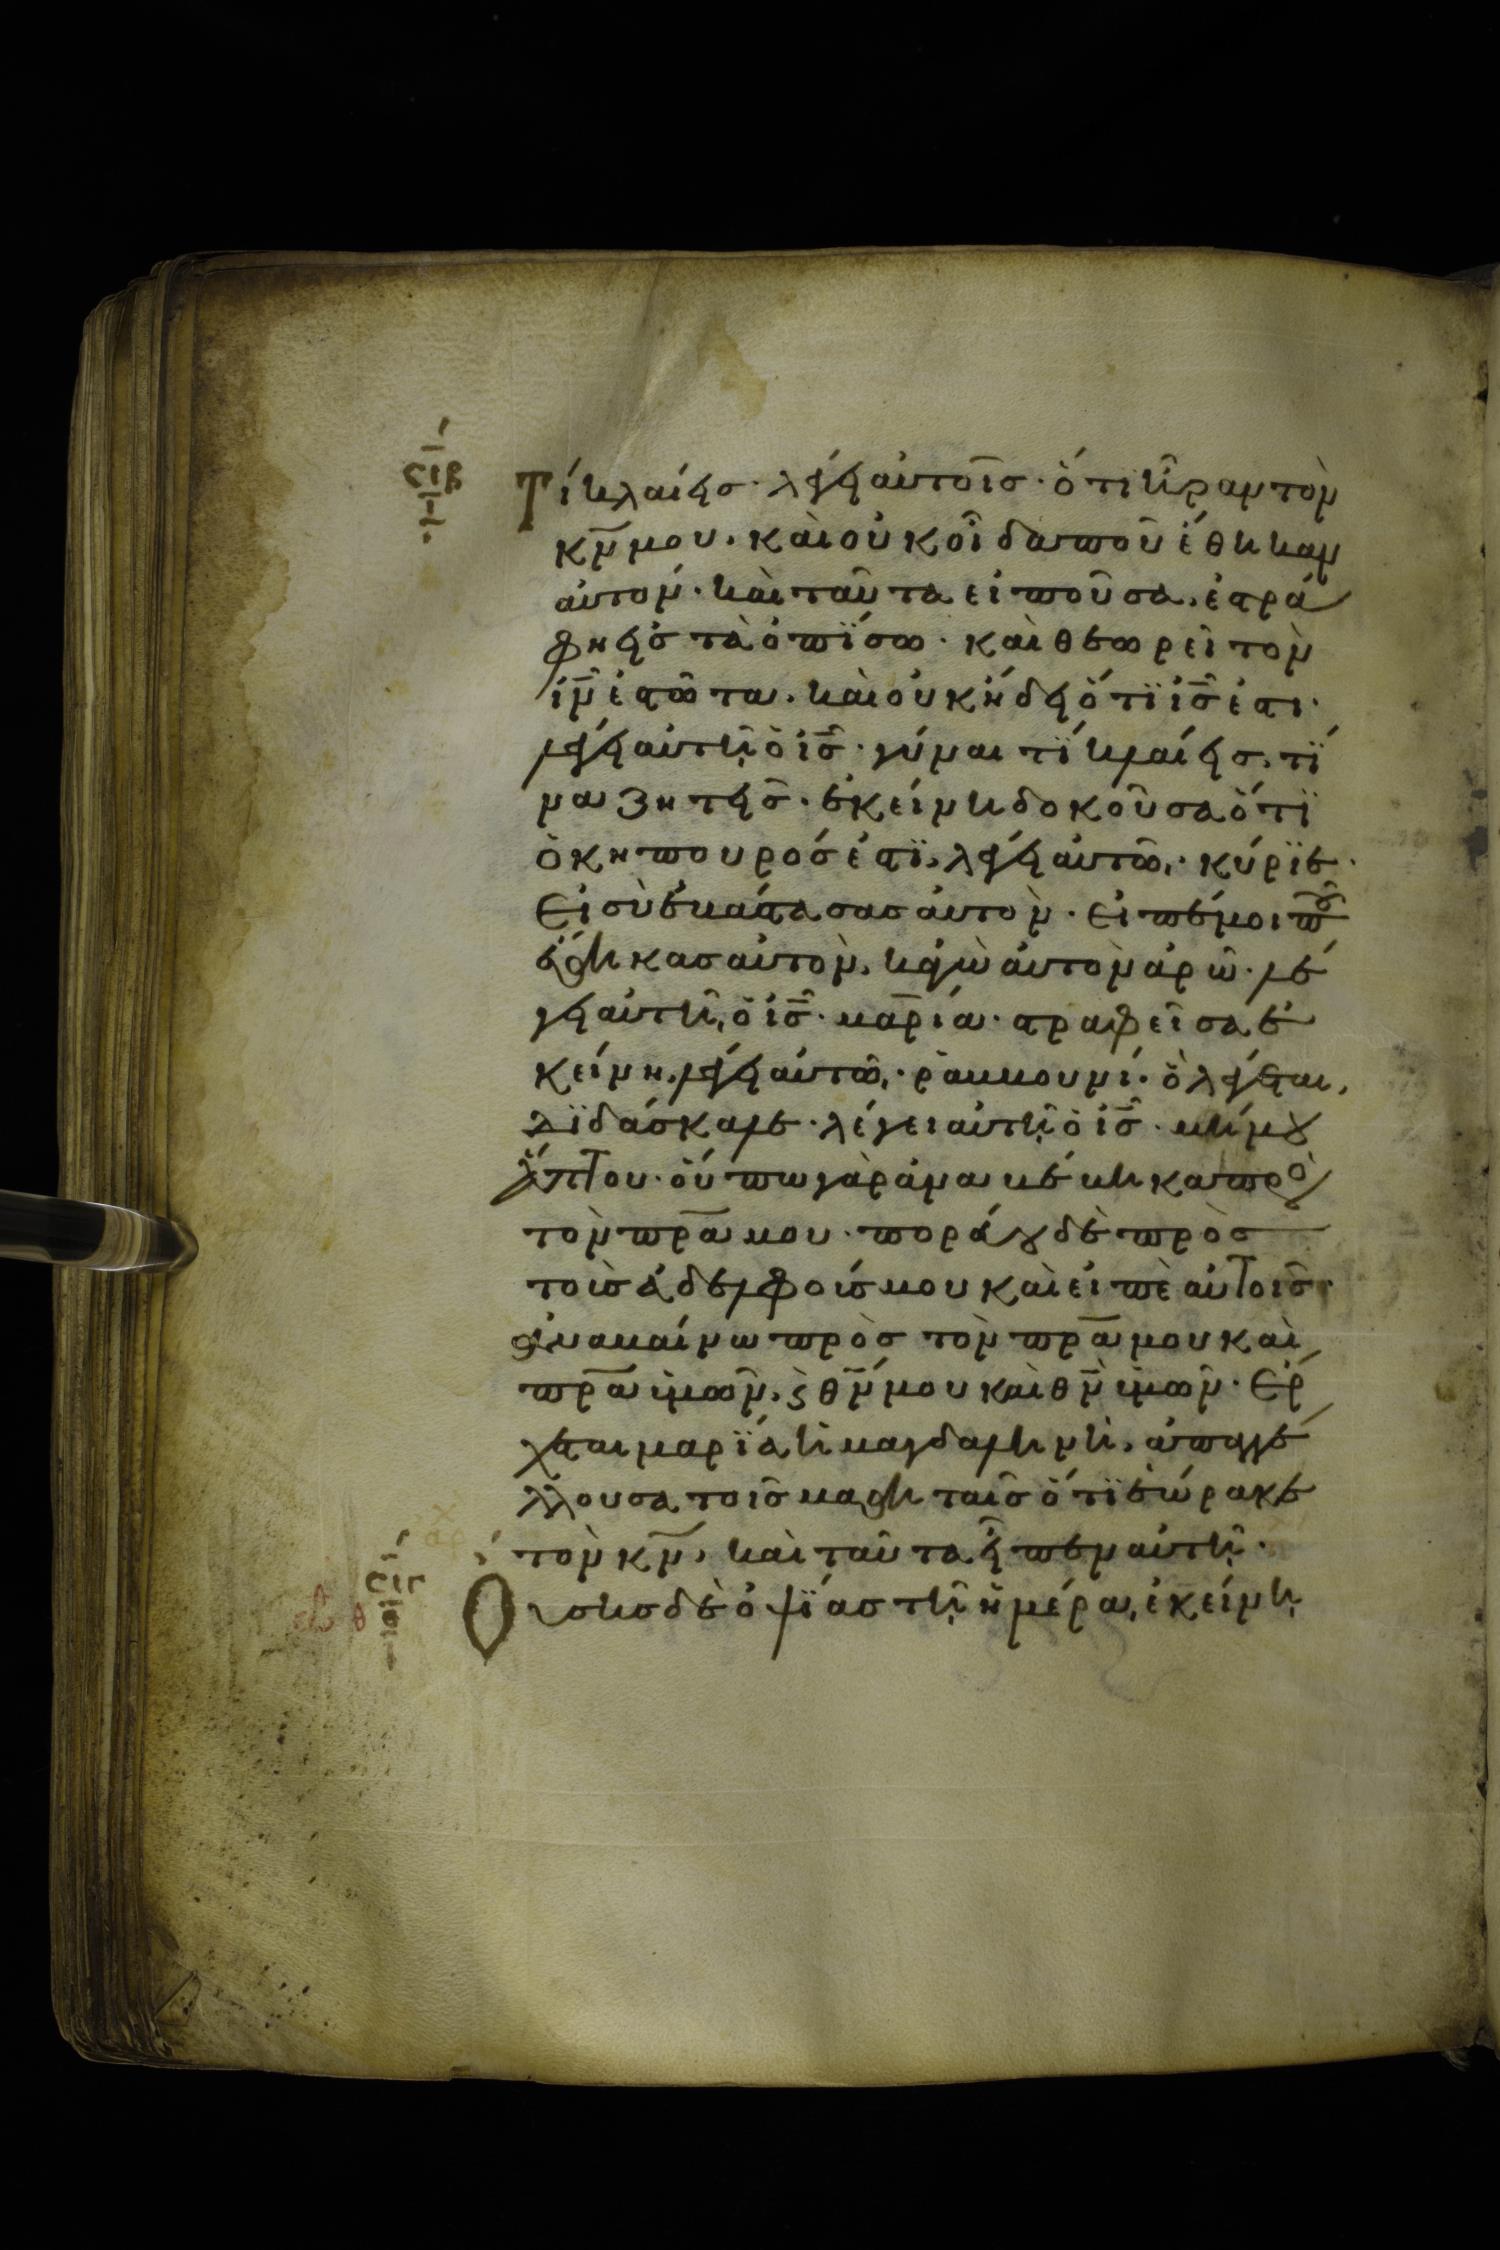 σιβ
ι
Τί κλαίεις· λέγει αὐτοῖς· ὅτι ἦραν τὸν
κν̄ μου. καὶ οὐκ οἶδα ποῦ ἔθηκαν
αὐτόν· καὶ ταῦτα εἰποῦσα, ἐστρά
φη εἰς τὰ ὀπίσω· καὶ θεωρεῖ τὸν
ιν̄ ἑστῶτα. καὶ οὐκ ἤδει ὅτϊ ις̄ ἐστι·
λέγει αὐτῆ, ὁ ις̄· γύναι τί κλαίεις, τί
να ζητεῖς· ἐκείνη δοκοῦσα ὅτϊ
ὁ κηπουρός ἐστϊ, λέγει αὐτῶ,· κύρϊε·
εἰ σὺ ἐβάστασας αὐτὸν· εἰπέ μοι ποῦ
ἔθηκας αὐτὸν, κἀγὼ αὐτὸν ἀρῶ· λέ
γει αὐτῆ, ὁ ις̄· μαρία· στραφεῖσα ἐ
κείνη, λέγει αὐτῶ,· ῥαββουνί· ὃ λέγεται,
διδάσκαλε· λέγει αὐτῆ, ὁ ις̄· μή μου
ἅπτου· οὔπω γὰρ ἀναβέβηκα πρὸς
τὸν πρ̄α μου· πορεύου δὲ πρὸς
τοὺς ἀδελφούς μου καὶ εἰπὲ αὐτοῖς·
ἀναβαίνω πρὸς τὸν πρ̄α μου καὶ
πρ̄α ὑμῶν, ϗ θν̄ μου καὶ θν̄ ὑμῶν· Ἔρ
χεται μαρϊὰ ἡ μαγδαληνὴ, ἀπαγγέ
λλουσα τοῖς μαθηταῖς ὅτϊ ἑώρακε
τὸν κν̄, καὶ ταῦτα εἶπεν αὐτῆ,·
σιγ
θ
Οὔσης δὲ ὀψϊας τῆ, ἡμέρα, ἐκείνη,